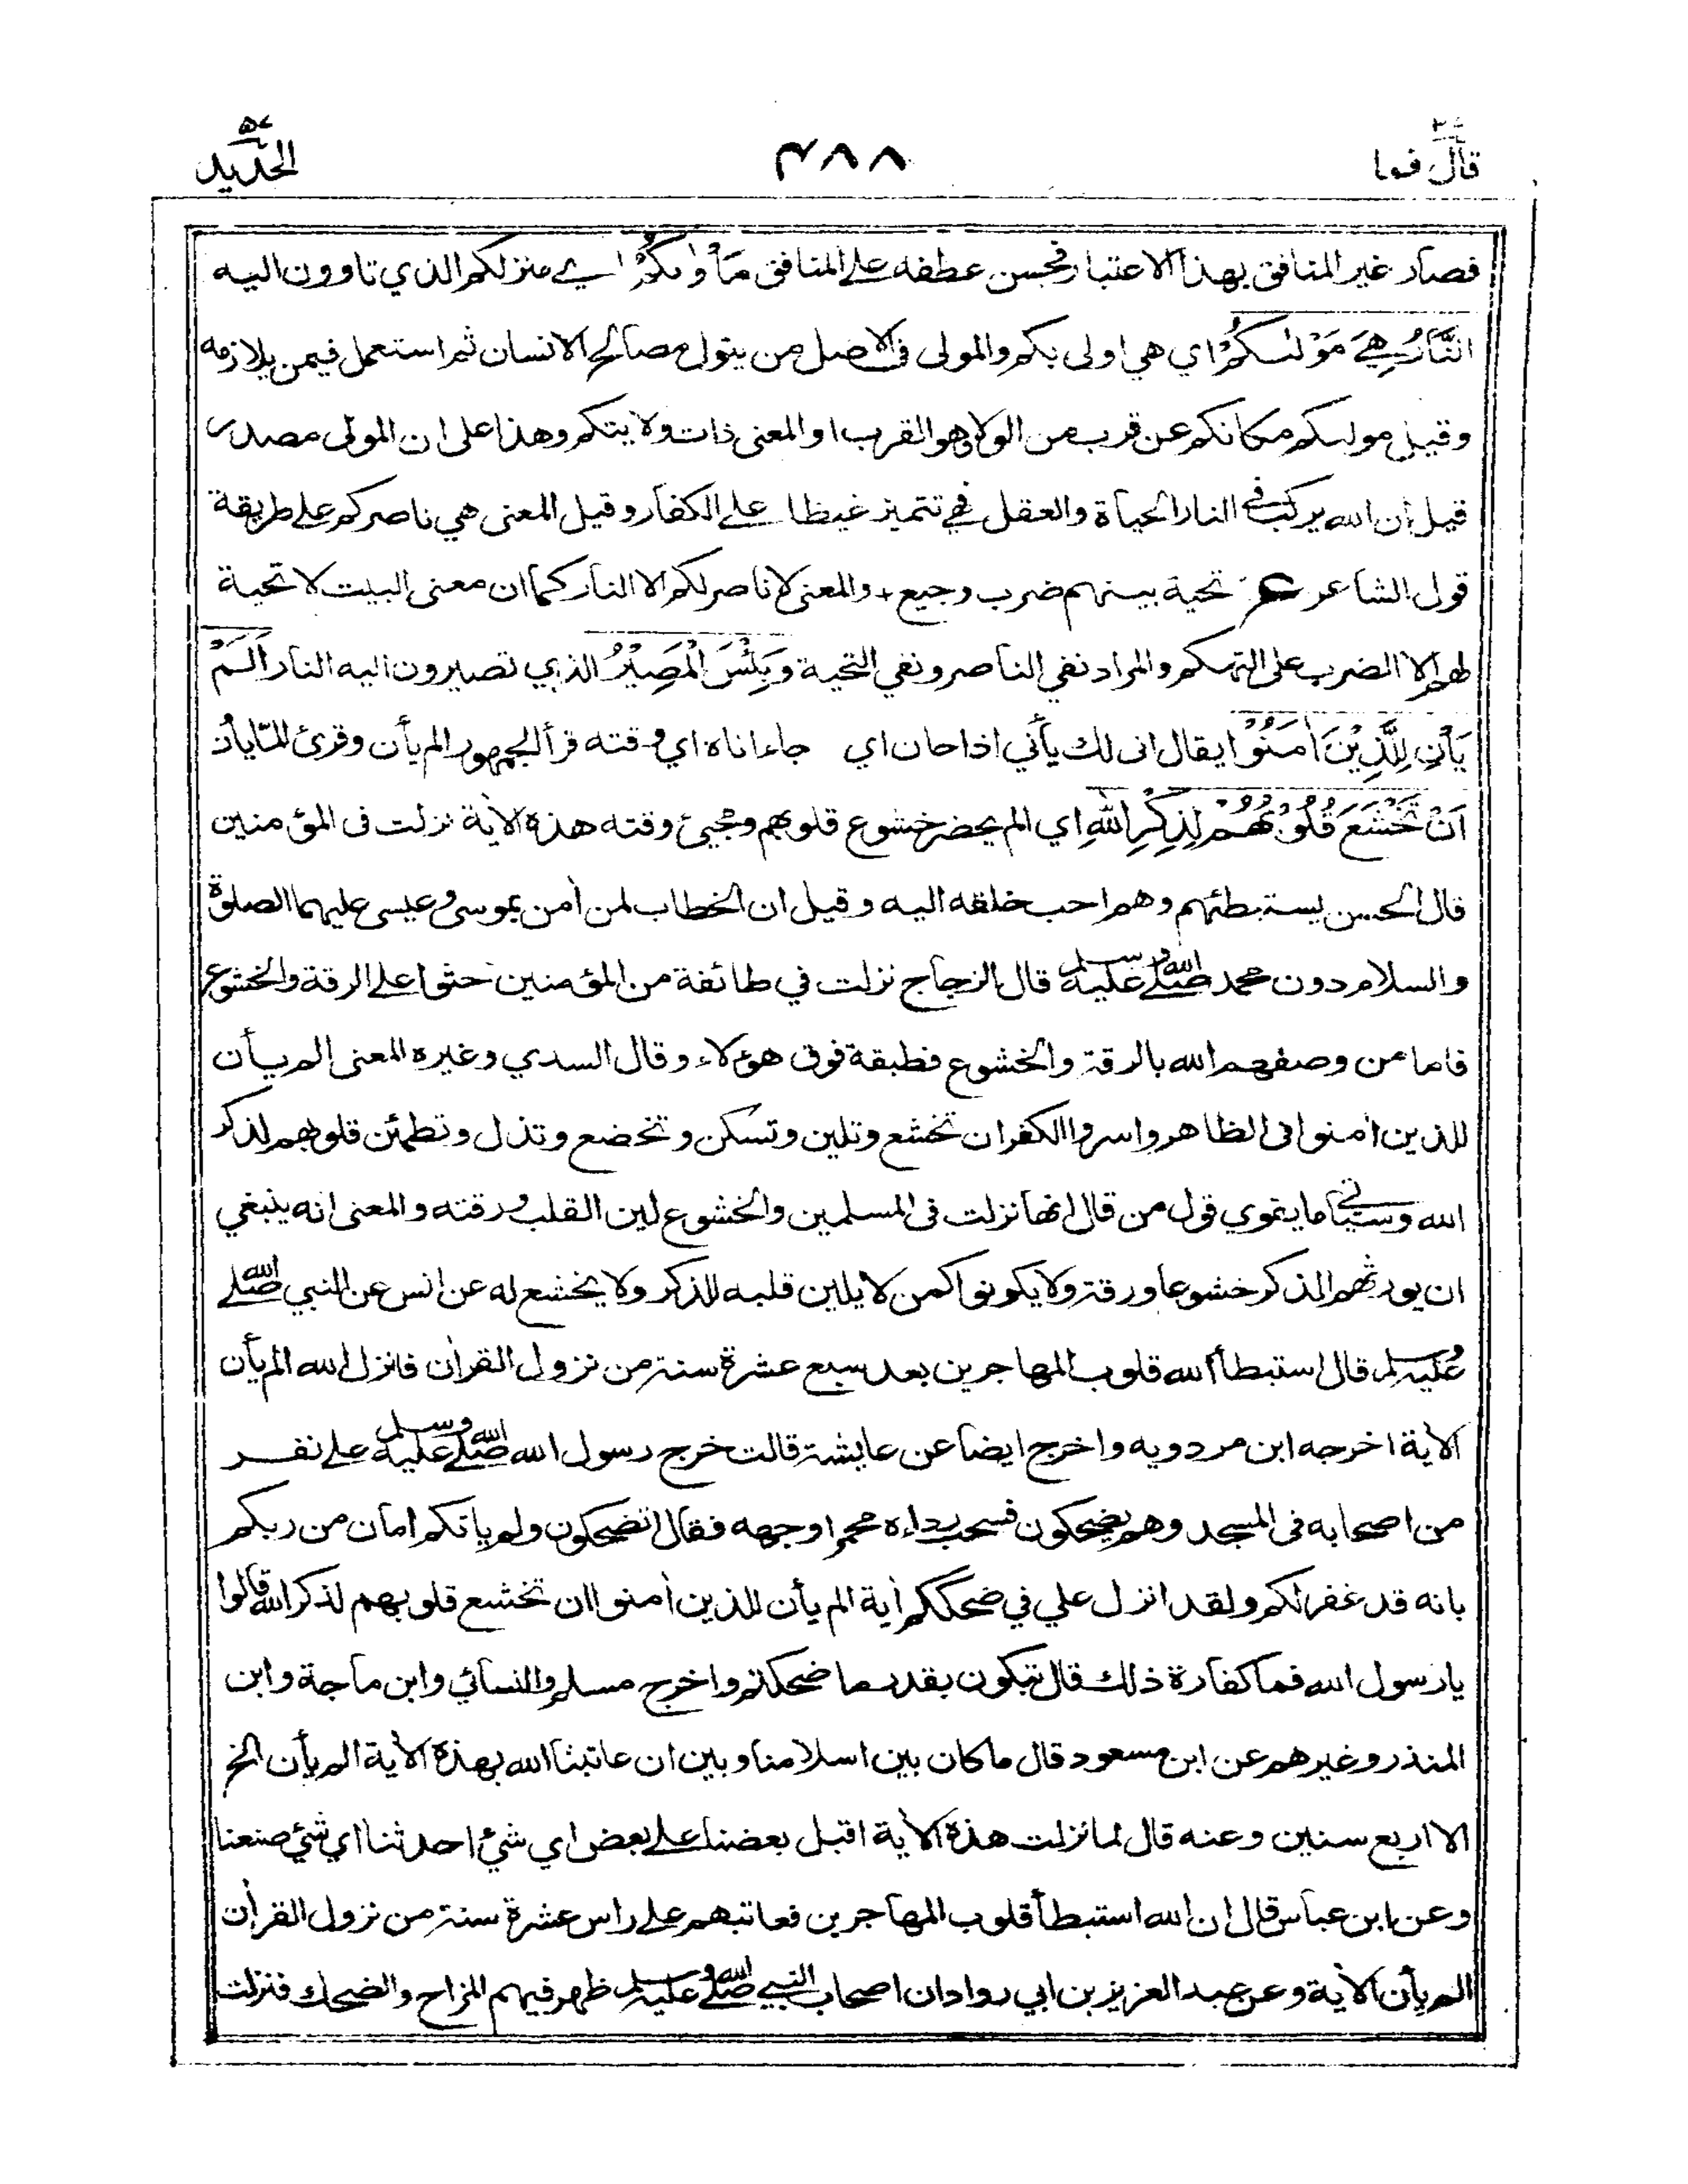 قال فما ٤٨٨ الحديد ٥٧
فصار غير المنافق بهذا الاعتبار فحسن عطفه على المنافق مَأْوٰىكُمُ اي منزلكم الذي تاوون اليه
النَّارُ هِيَ مَوْلٰىكُمْ اي هي اولى بكم والمولى فى الاصل من يتولى مصالح الانسان ثم استعمل فيمن يلازمه
وقيل مولىكم مكانكم عن قرب من الولاء وهو القرب او المعنى ذات ولايتكم وهذا على ان المولى مصدر
قيل ان الله يركب في النار الحياة والعقل فهي تتميز غيظا على الكفار وقيل المعنى هي ناصركم على طريقة
قول الشاعر ع تحية بينهم ضرب وجيع + والمعنى لا ناصر لكم الا النار كما ان معنى البيت لا تحية
لهم الا الضرب على التهكم والمراد نفي الناصر ونفي التحية وَبِئْسَ الْمَصِيْرُ الذي تصيرون اليه النار اَلَمْ
يَأْنِ لِلَّذِيْنَ اٰمَنُوْا يقال انى لك يأني اذا حان اي جاء اناه اي وقته قرأ الجمهور الم يأن وقرئ المّا يأن
اَنْ تَخْشَعَ قُلُوْبُهُمْ لِذِكْرِ اللهِ اي الم يحضر خشوع قلوبهم ومجيئ وقته هذه الاٰية نزلت فى المؤمنين
قال الحسن يستبطئهم وهم احب خلقه اليه وقيل ان الخطاب لمن اٰمن بموسى وعيسى عليهما الصلوة
والسلام دون محمد صلى الله عليه وسلم قال الزجاج نزلت في طائفة من المؤمنين حثوا على الرقة والخشوع
فاما من وصفهم الله بالرقة والخشوع فطبقة فوق هؤلاء وقال السدي وغيره المعنى الم يأن
للذين اٰمنوا فى الظاهر واسروا الكفر ان تخشع وتلين وتسكن وتخضع وتذل وتطمئن قلوبهم لذكر
الله وسيأتي ما يقوي قول من قال انها نزلت فى المسلمين والخشوع لين القلب ورقته والمعنى انه ينبغي
ان يورثهم الذكر خشوعا ورقة ولا يكونوا كمن لا يلين قلبه للذكر ولا يخشع له عن انس عن النبي صلى الله
عليه وسلم قال استبطأ الله قلوب المهاجرين بعد سبع عشرة سنة من نزول القراٰن فانزل الله الم يأن
الاٰية اخرجه ابن مردويه واخرج ايضا عن عايشة قالت خرج رسول الله صلى الله عليه وسلم على نفر
من اصحابه فى المسجد وهم يضحكون فسحب رداءه محمرا وجهه فقال اتضحكون ولم ياتكم امان من ربكم
بانه قد غفر لكم ولقد انزل علي في ضحككم اٰية الم يأن للذين اٰمنوا ان تخشع قلوبهم لذكر الله قالوا
يا رسول الله فما كفارة ذلك قال تبكون بقدر ما ضحكتم واخرج مسلم والنسائي وابن ماجة وابن
المنذر وغيرهم عن ابن مسعود قال ما كان بين اسلامنا وبين ان عاتبنا الله بهذه الاٰية الم يأن الخ
الا اربع سنين وعنه قال لما نزلت هذه الاٰية اقبل بعضنا على بعض اي شئ احدثنا اي شئ صنعنا
وعن ابن عباس قال ان الله استبطأ قلوب المهاجرين فعاتبهم على راس عشرة سنة من نزول القراٰن
الم يأن الاٰية وعن عبد العزيز بن ابي رواد ان اصحاب النبي صلى الله عليه وسلم ظهر فيهم المزاح والضحك فنزلت